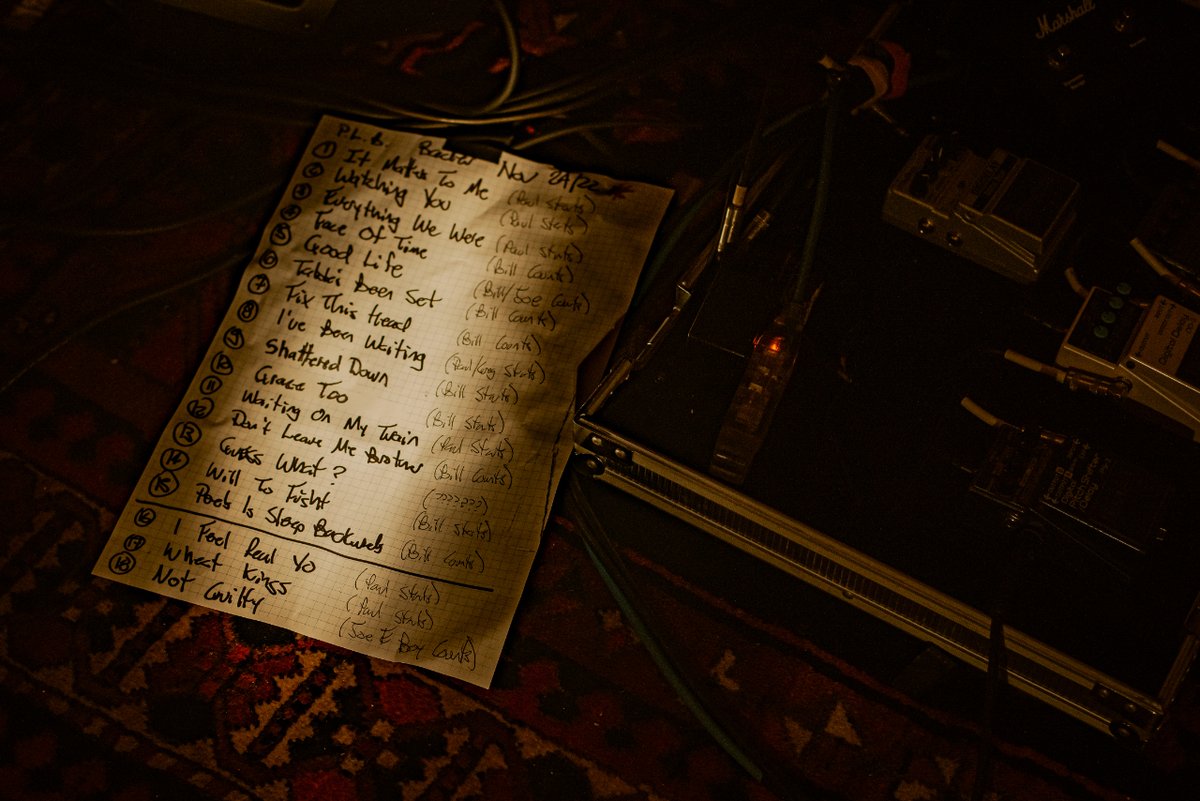 P.L.B. Nov 24/22
① It Matters To Me (Paul Starts)
② Watching You (Paul Starts)
③ Everything We Were (Paul Starts)
④ Face Of Time (Bill Counts)
⑤ Good Life (Bill/Joe Counts)
⑥ Been Set (Bill Counts)
⑦ Fix This Head (Bill Counts)
⑧ I've Been Waiting (Paul/Greg Starts)
⑨ Shattered Down (Bill Starts)
⑩ Grace Too (Bill Starts)
⑪ Waiting On My Train (Paul Starts)
⑫ Don't Leave Me Brother (Bill Counts)
⑬ Guess What? (???????)
⑭ Will To Fight (Bill Starts)
⑮ Pools Is Sloop Backwards (Bill Counts)
⑯ I Feel Real Yo (Paul Starts)
⑰ Wheat Kings (Paul Starts)
⑱ Not Guilty (Joe E Boy Counts)
Marshall
Digital Delay